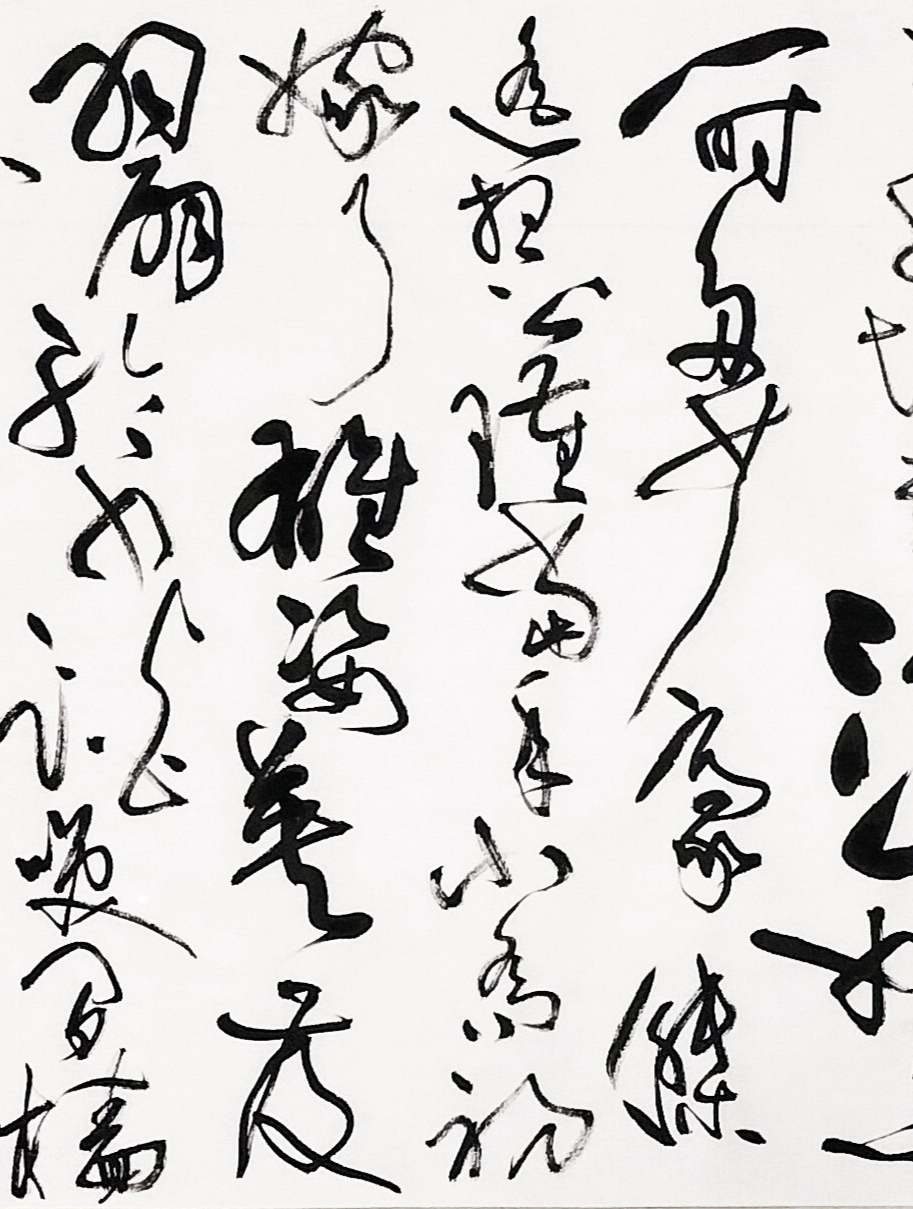 江山如
一時多少豪傑
遥想公瑾當年小喬初
嫁了雄姿英發
羽扇綸巾談笑間檣